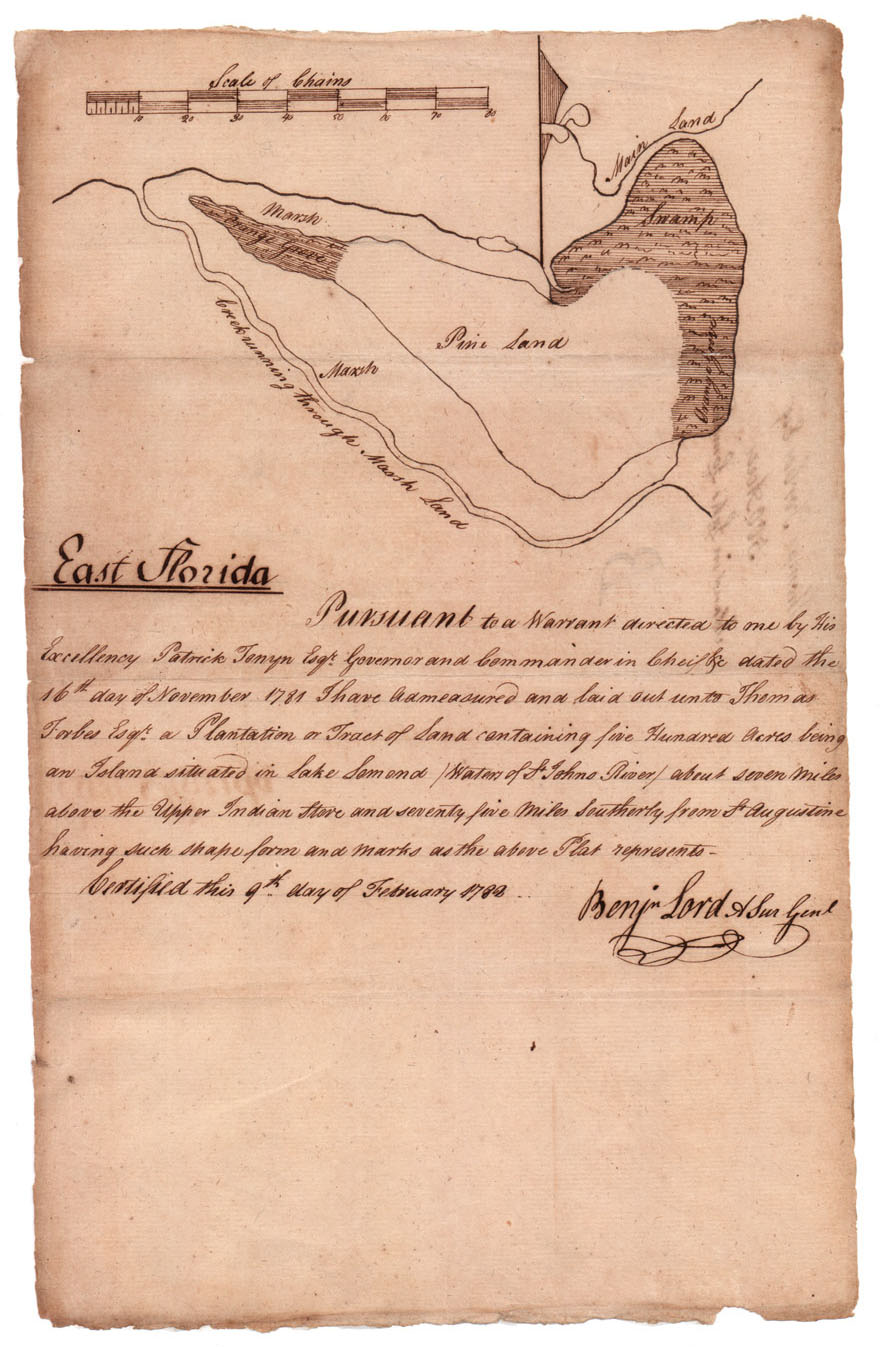 Scale of Chains
10 20 30 40 50 60 70 80
Main Land
Swamp
Marsh
Orange Grove
Pine Land
Orange Grove
Marsh
Creek running through Marsh Land
East Florida
Pursuant to a Warrant directed to me by His
Excellency Patrick Tonyn Esqr. Governor and Commander in Cheif &c dated the
16th day of November 1781 I have Admeasured and laid out unto Thomas
Forbes Esqr. a Plantation or Tract of Land containing five Hundred Acres being
an Island situated in Lake Lomond /Waters of St. Johns River/ about seven Miles
above the Upper Indian Store and seventy five Miles Southerly from St. Augustine
having such shape form and marks as the above Plat represents-
Certified this 9th day of February 178
Benjn Lord A Sur Genl